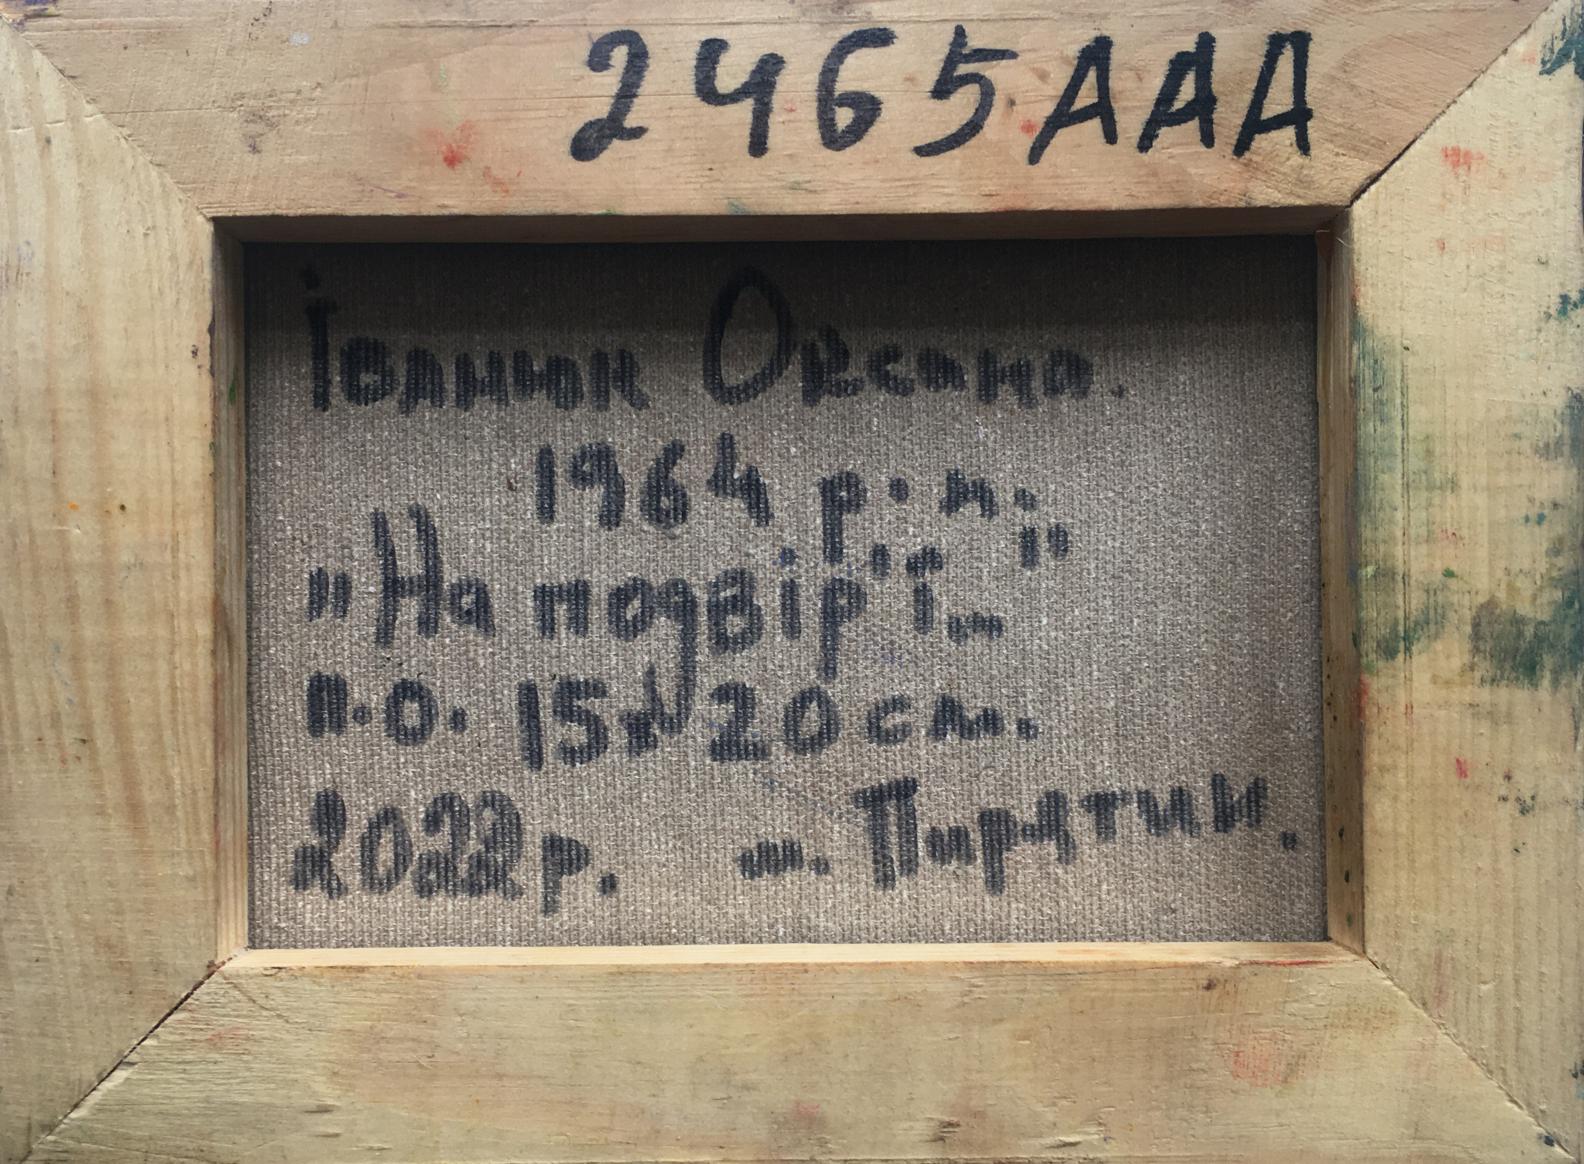 2465AAA
Іванюк Оксана.
1964 р. н.
"На подвір'ї..."
п.о. 15х20 см.
2022 р. м. Пирятин.